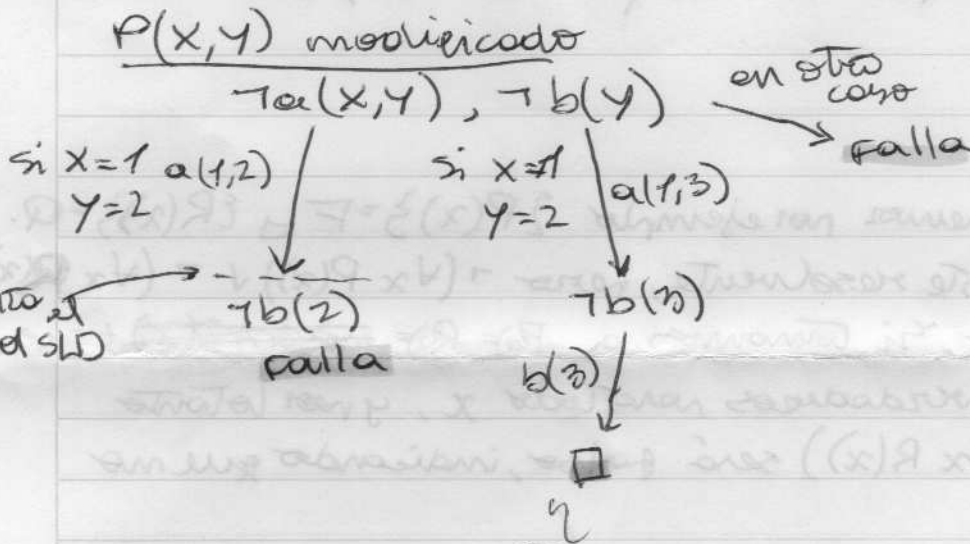 P(X,Y) modificado
¬a(X,Y), ¬b(Y)
en otro
caso
falla
si X=1 a(1,2)
Y=2
si X=1
Y=2
a(1,3)
el SLD
¬b(2)
falla
¬b(3)
b(3)
□